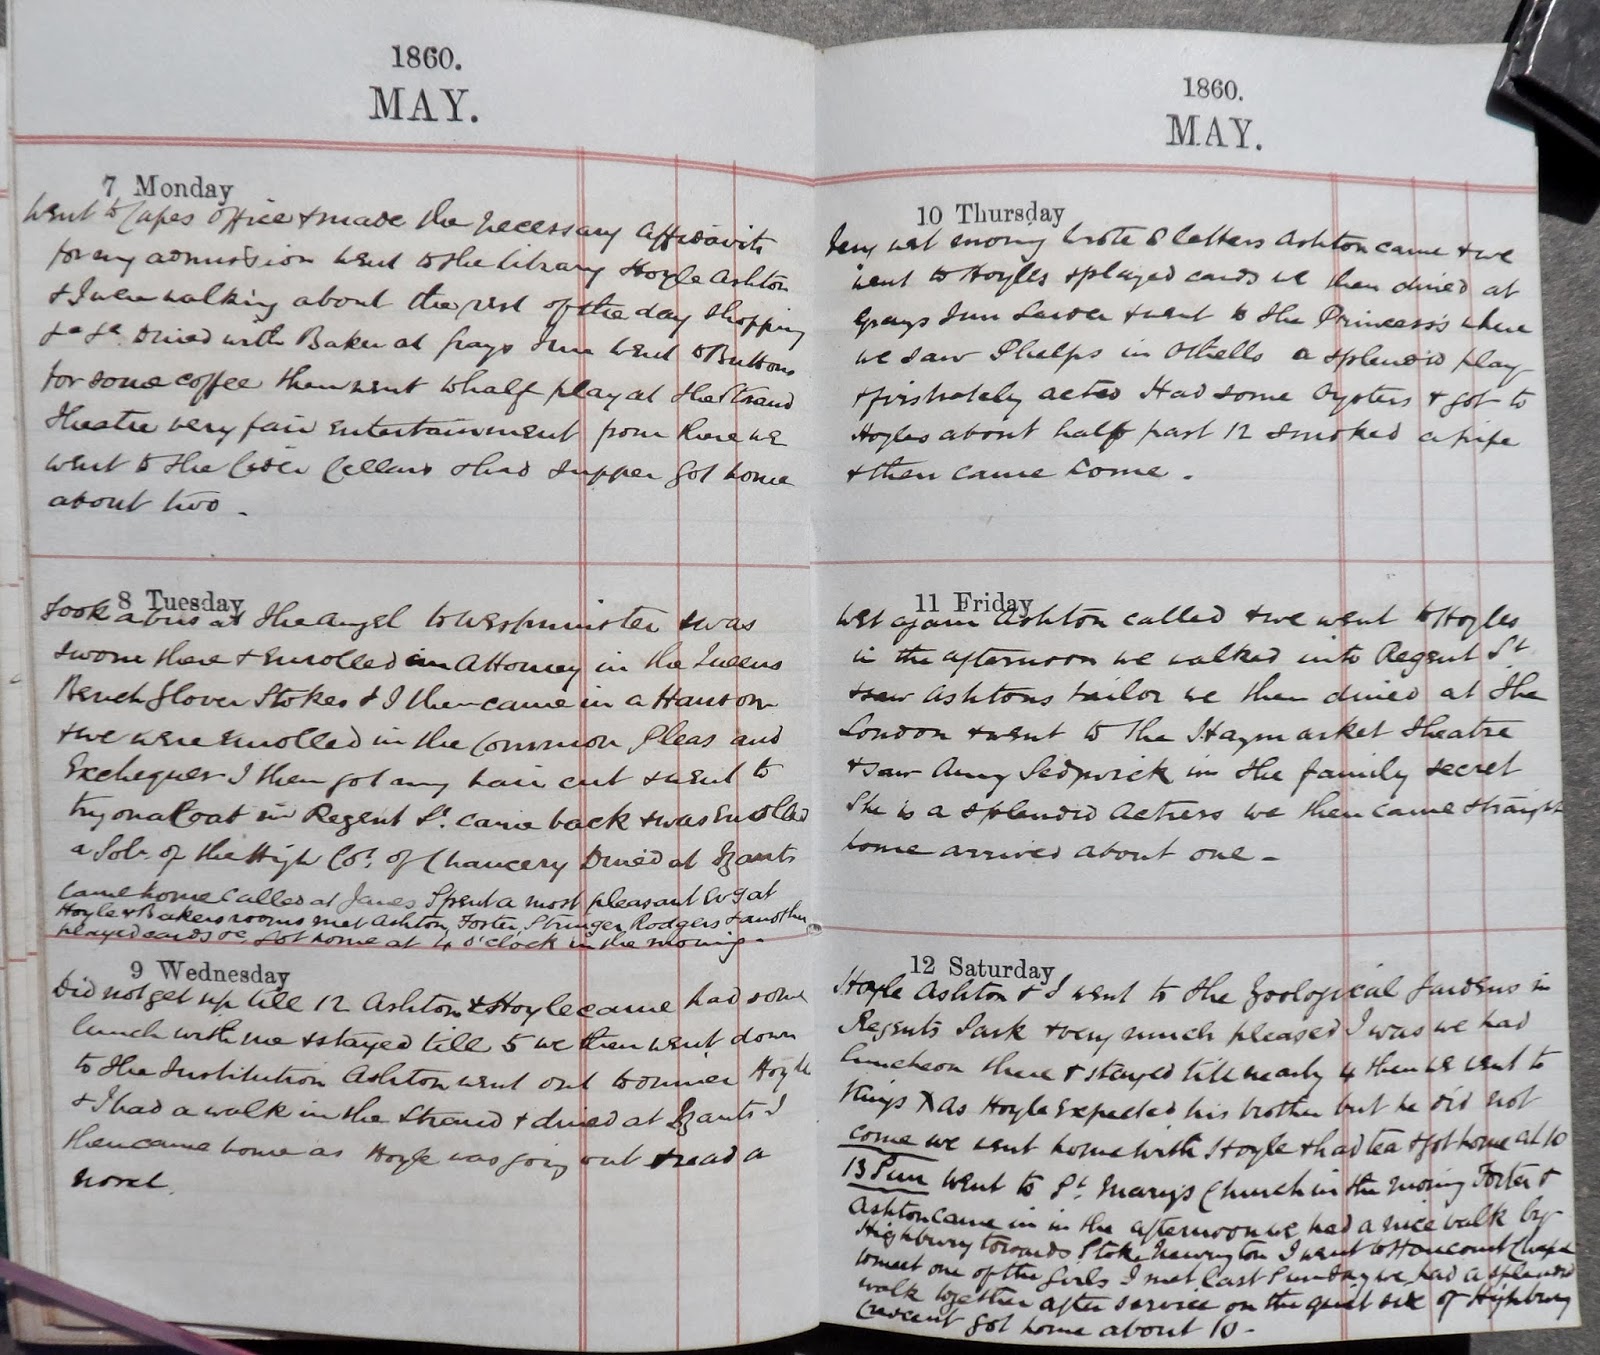 1860.
MAY.
7 Monday
Went to Capes Office & made the necessary Affidavits
for my admission went to the library Hoyle Ashton
& I were walking about the rest of the day shopping
&c &c. Dined with Baker at Grays Inn went to Buttons
for some coffee then went to half play at the Strand
Theatre very fair entertainment from there we
went to the Cider Cellars & had supper got home
about two -
8 Tuesday
Took a bus at The Angel to Westminster & was
sworn there & enrolled an Attorney in the Queens
Bench Glover Stokes & I then came in a Hansom
& we were enrolled in the Common Pleas and
Exchequer I then got my hair cut & went to
try on a Coat in Regent St. came back & was enrolled
a Solr. of the High Cot. of Chancery Dined at Izants
Came home Called at Janes Spent a most pleasant Evg at
Hoyle & Bakers rooms met Ashton, Forter, Stringer, Rodgers & another
played cards &c. Got home at 4 o'clock in the morning -
9 Wednesday
Did not get up till 12 Ashton & Hoyle came had some
lunch with me & stayed till 5 we then went down
to the Institution Ashton went out to dinner Hoyle
& I had a walk in the Strand & dined at Izants I
then came home as Hoyle was going out & read a
novel.
1860.
MAY.
10 Thursday
Very wet morng wrote 8 letters Ashton came & we
went to Hoyles & played cards we then dined at
Grays Inn & went to the Princess's where
we saw Phelps in Othello a splendid play
& acted Had some Oysters & got to
Hoyles about half past 12 smoked a pipe
& then came home.
11 Friday
Wet again Ashton called & we went to Hoyles
in the afternoon we walked into Regent St
& saw Ashtons tailor we then dined at The
London & went to the Haymarket Theatre
& saw Amy Sedgwick in the family secret
She is a splendid actress we then came straight
home arrived about one -
12 Saturday
Hoyle Ashton & I went to the Zoological Gardens in
Regents Park & very much pleased I was we had
luncheon there & stayed till nearly 4 then we went to
Kings X as Hoyle Expected his brother but he did not
come we went home with Hoyle & had tea & got home at 10
13 Sun Went to St Mary's Church in the morning Forter &
Ashton came in in the afternoon we had a nice walk by
Highbury towards Stoke Newington I went to Harcourt Chapel
to meet one of the Girls I met last Sunday we had a splendid
walk together after service on the quiet side of Highbury
Crescent got home about 10 -